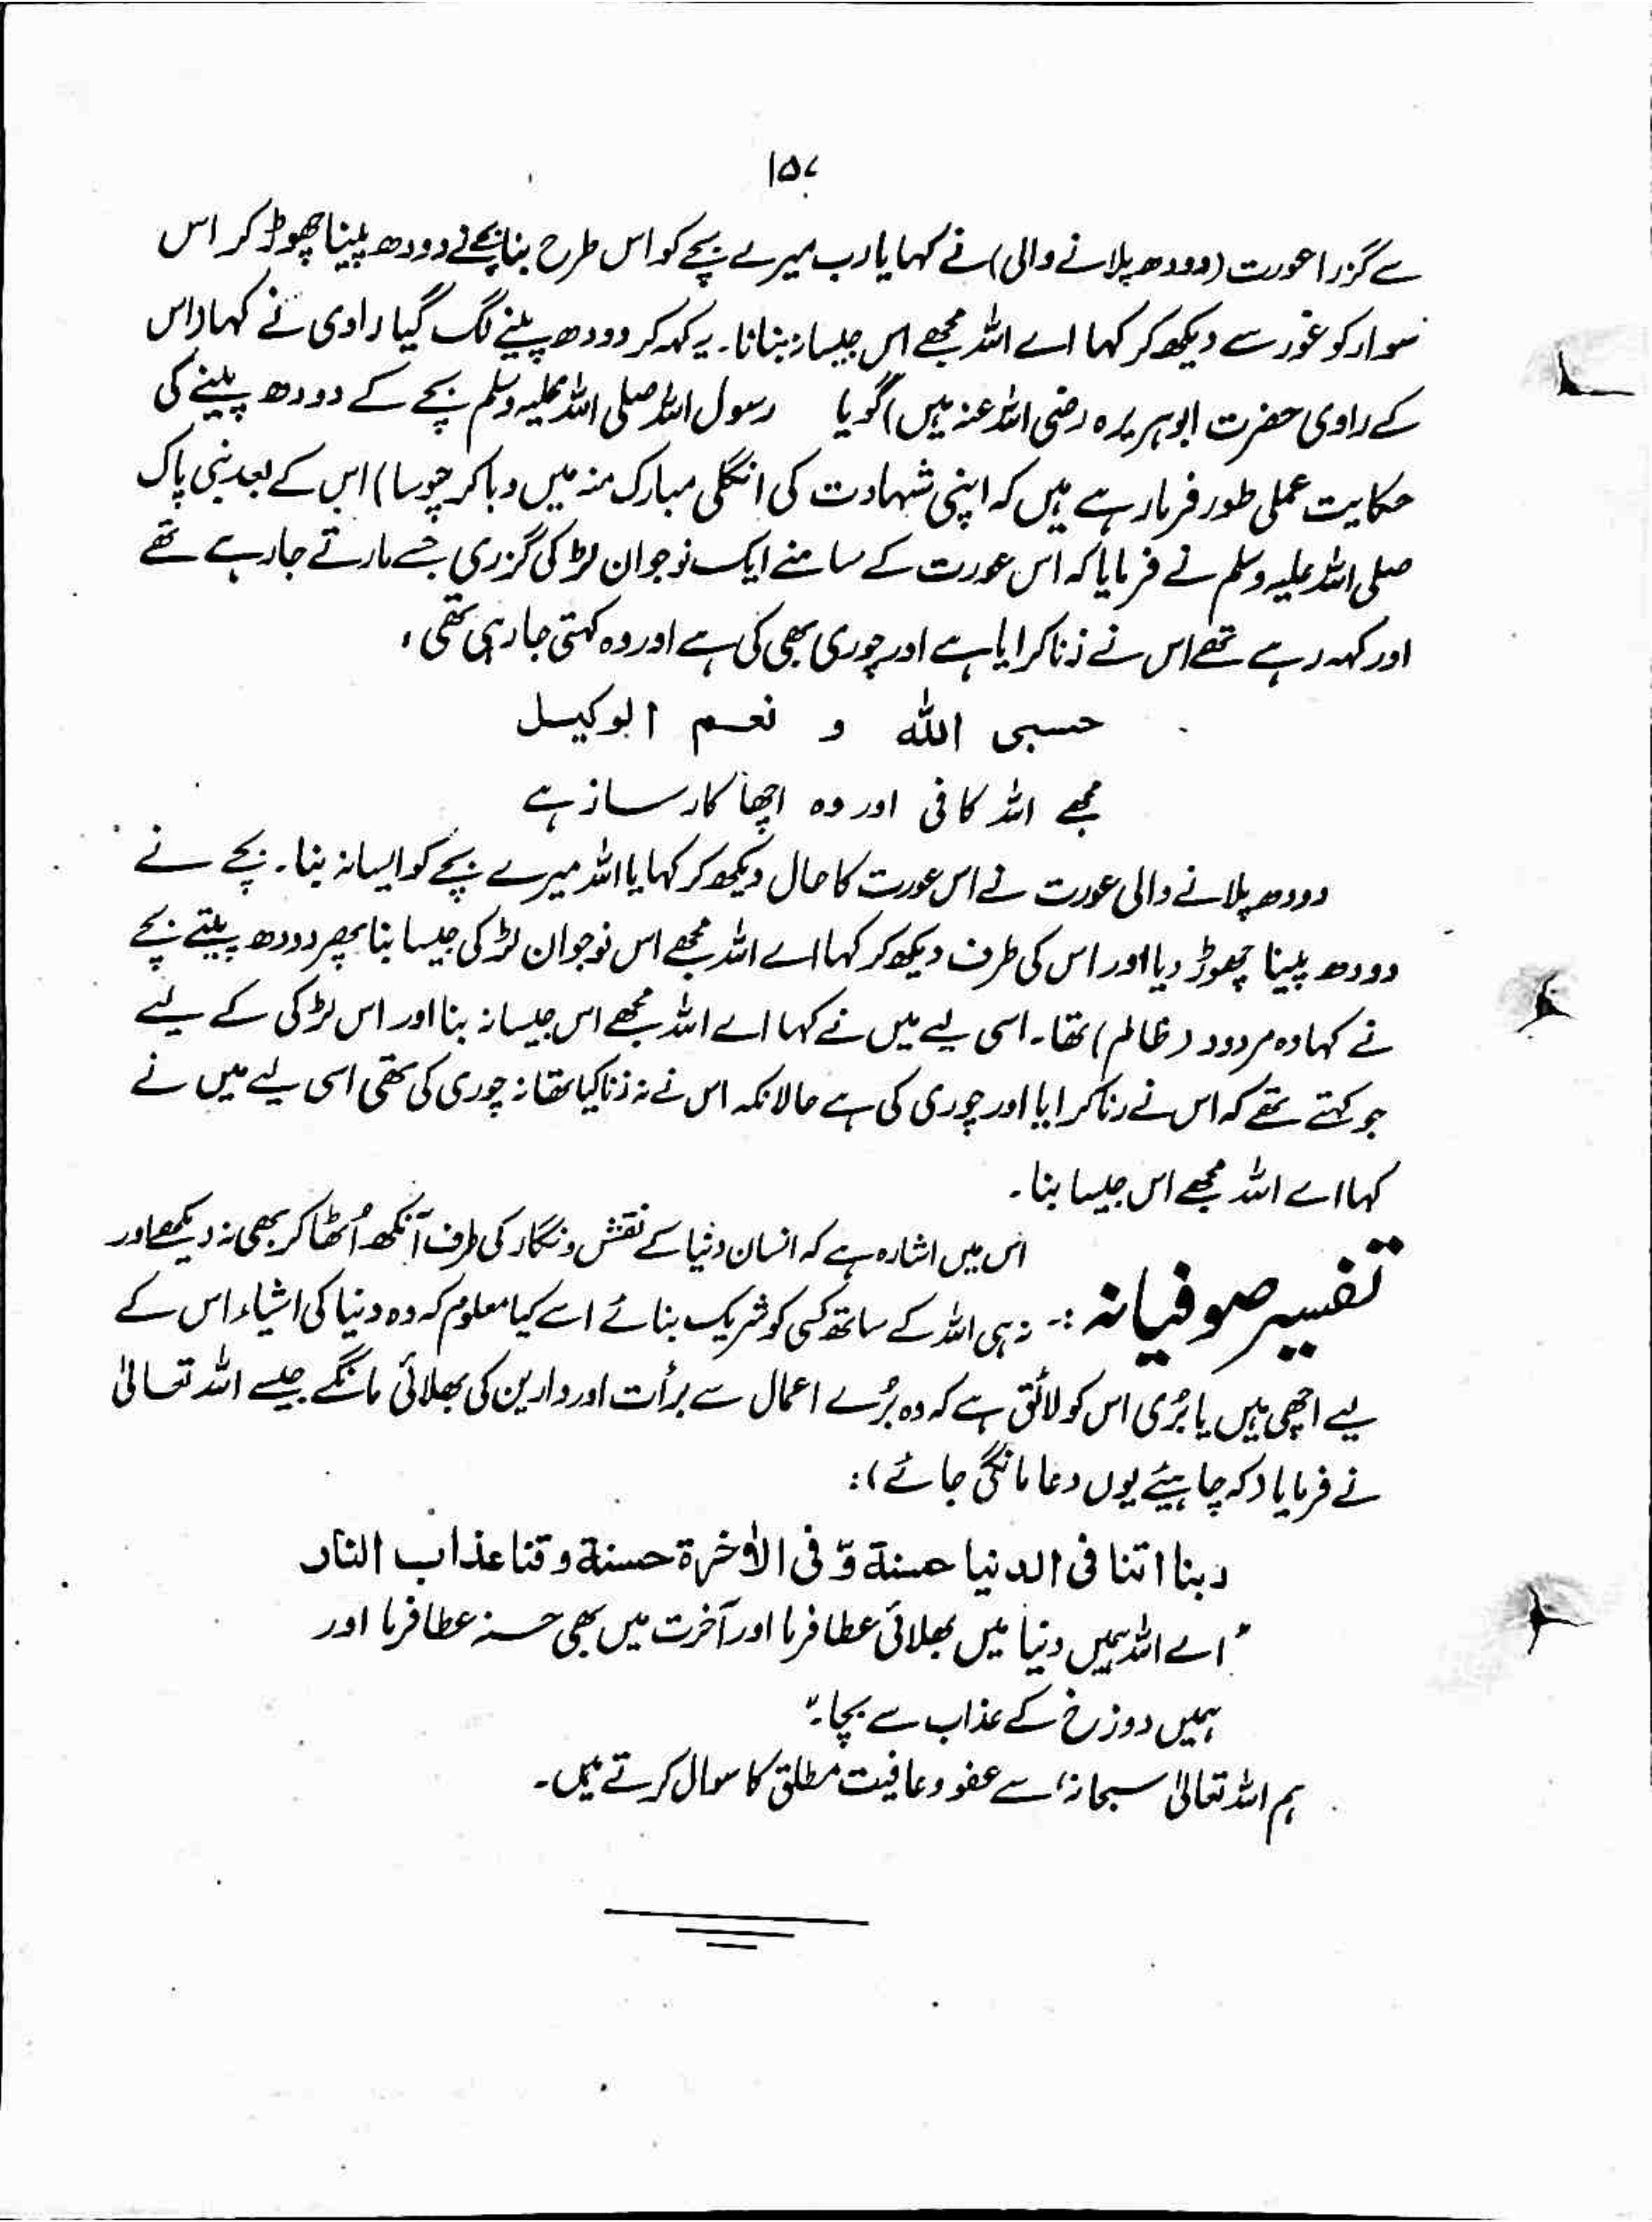 ۱۵۷
سے گزرا عورت (دودھ پلانے والی) نے کہا یا رب میرے بچے کو اس طرح بنا بچے نے دودھ پینا چھوڑ کر اس
سوار کو غور سے دیکھ کر کہا اے اللہ مجھے اس جیسا نہ بنانا۔ یہ کہہ کر دودھ پینے لگ گیا راوی نے کہا (اس
کے راوی حضرت ابوہریرہ رضی اللہ عنہ ہیں) گویا رسول اللہ صلی اللہ علیہ وسلم بچے کے دودھ پینے کی
حکایت عملی طور فرما رہے ہیں کہ اپنی شہادت کی انگلی مبارک منہ میں دبا کر چوسا) اس کے بعد نبی پاک
صلی اللہ علیہ وسلم نے فرمایا کہ اس عورت کے سامنے ایک نوجوان لڑکی گزری جسے مارتے جا رہے تھے
اور کہہ رہے تھے اس نے زنا کرایا ہے اور چوری بھی کی ہے اور وہ کہتی جا رہی تھی،
حسبی اللہ و نعم الوکیل
مجھے اللہ کافی اور وہ اچھا کارساز ہے
دودھ پلانے والی عورت نے اس عورت کا حال دیکھ کر کہا یا اللہ میرے بچے کو ایسا نہ بنا۔ بچے نے
دودھ پینا چھوڑ دیا اور اس کی طرف دیکھ کر کہا اے اللہ مجھے اس نوجوان لڑکی جیسا بنا پھر دودھ پیتے بچے
نے کہا وہ مردود (ظالم) تھا۔ اسی لیے میں نے کہا اے اللہ مجھے اس جیسا نہ بنا اور اس لڑکی کے لیے
جو کہتے تھے کہ اس نے زنا کرایا اور چوری کی ہے حالانکہ اس نے نہ زنا کیا تھا نہ چوری کی تھی اسی لیے میں نے
کہا اے اللہ مجھے اس جیسا بنا۔
اس میں اشارہ ہے کہ انسان دنیا کے نقش و نگار کی طرف آنکھ اُٹھا کر بھی نہ دیکھے اور
تفسیر صوفیانہ :- نہ ہی اللہ کے ساتھ کسی کو شریک بنائے اسے کیا معلوم کہ وہ دنیا کی اشیاء اس کے
لیے اچھی ہیں یا بُری اس کو لائق ہے کہ وہ بُرے اعمال سے برأت اور دارین کی بھلائی مانگے جیسے اللہ تعالیٰ
نے فرمایا (کہ چاہیئے یوں دعا مانگی جائے):
ربنا اتنا فی الدنیا حسنة وّ فی الاٰخرة حسنة وقنا عذاب النار
"اے اللہ ہمیں دنیا میں بھلائی عطا فرما اور آخرت میں بھی حسنہ عطا فرما اور
ہمیں دوزخ کے عذاب سے بچا۔"
ہم اللہ تعالیٰ سبحانہٗ سے عفو و عافیت مطلق کا سوال کرتے ہیں۔